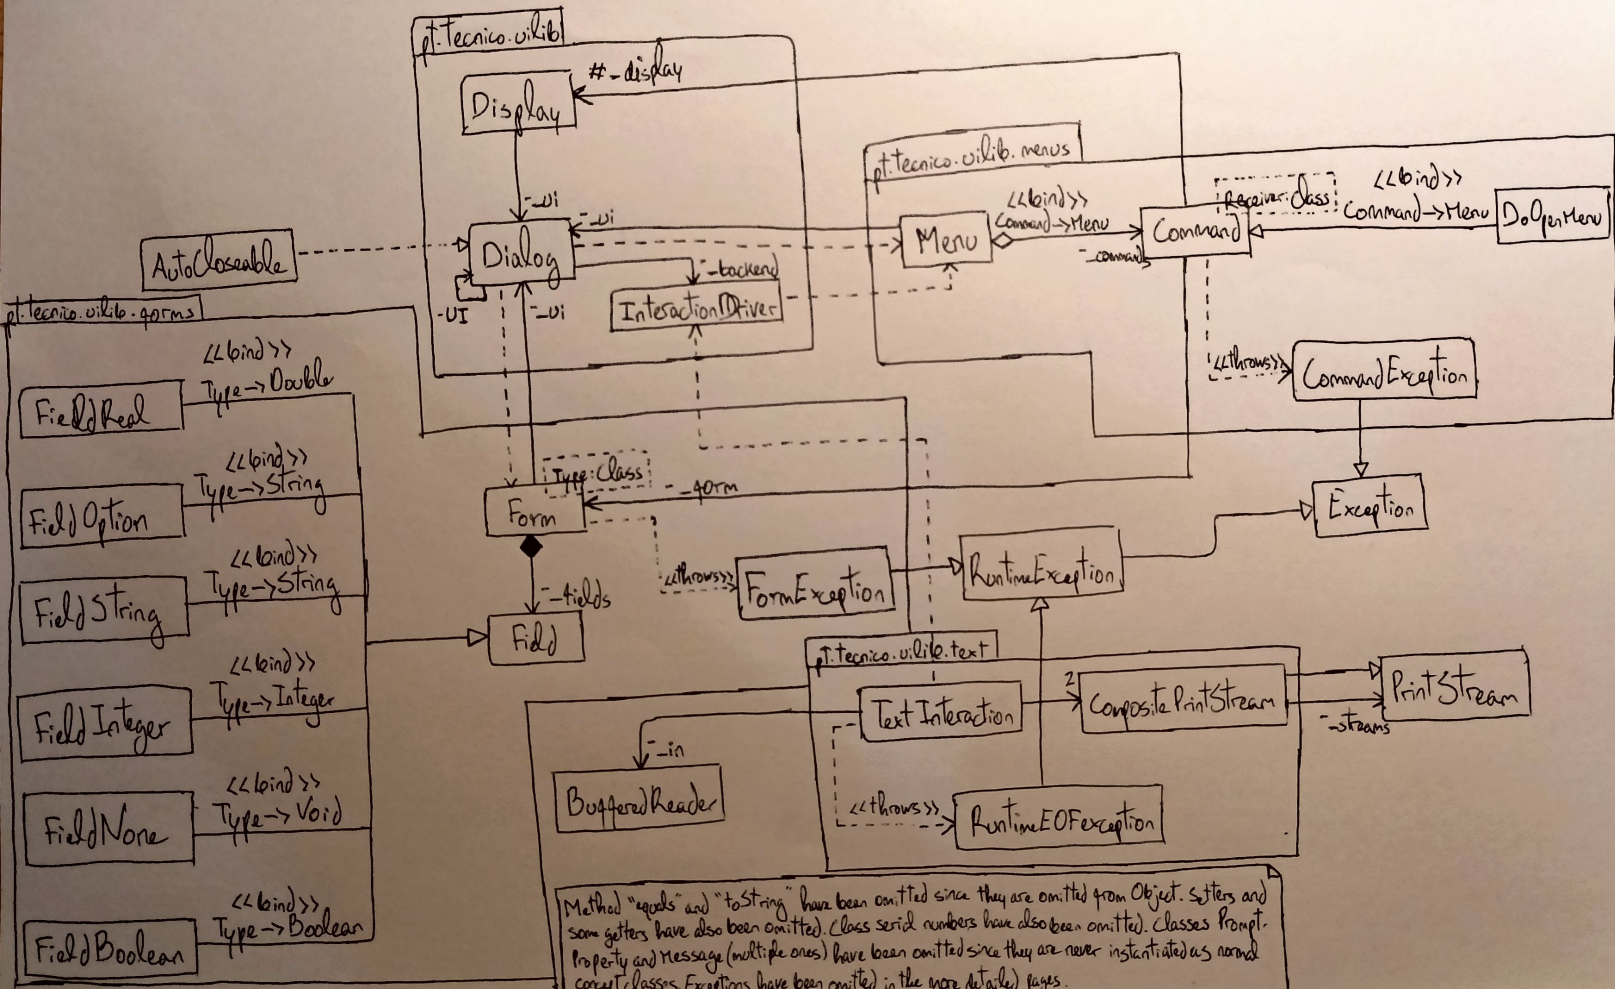 pt.tecnico.uilib
Display
#-_display
-_ui
AutoCloseable
Dialog
-_ui
-UI
-_ui
-_backend
InteractionDriver
pt.tecnico.uilib.menus
Menu
<<bind>>
Command->Menu
-_commands
Command
Receiver:Class
<<bind>>
Command->Menu
DoOpenMenu
<<throws>>
CommandException
Exception
pt.tecnico.uilib.forms
FieldReal
<<bind>>
Type->Double
FieldOption
<<bind>>
Type->String
FieldString
<<bind>>
Type->String
FieldInteger
<<bind>>
Type->Integer
FieldNone
<<bind>>
Type->Void
FieldBoolean
<<bind>>
Type->Boolean
Type:Class
Form
-_form
-_fields
Field
<<throws>>
FormException
RuntimeException
pt.tecnico.uilib.text
TextInteraction
2
CompositePrintStream
PrintStream
-_streams
-_in
BufferedReader
<<throws>>
RuntimeEOFexception
Method "equals" and "toString" have been omitted since they are omitted from Object. Setters and
some getters have also been omitted. Class serial numbers have also been omitted. Classes Prompt,
Property and Message (multiple ones) have been omitted since they are never instantiated as normal
concept classes. Exceptions have been omitted in the more detailed pages.